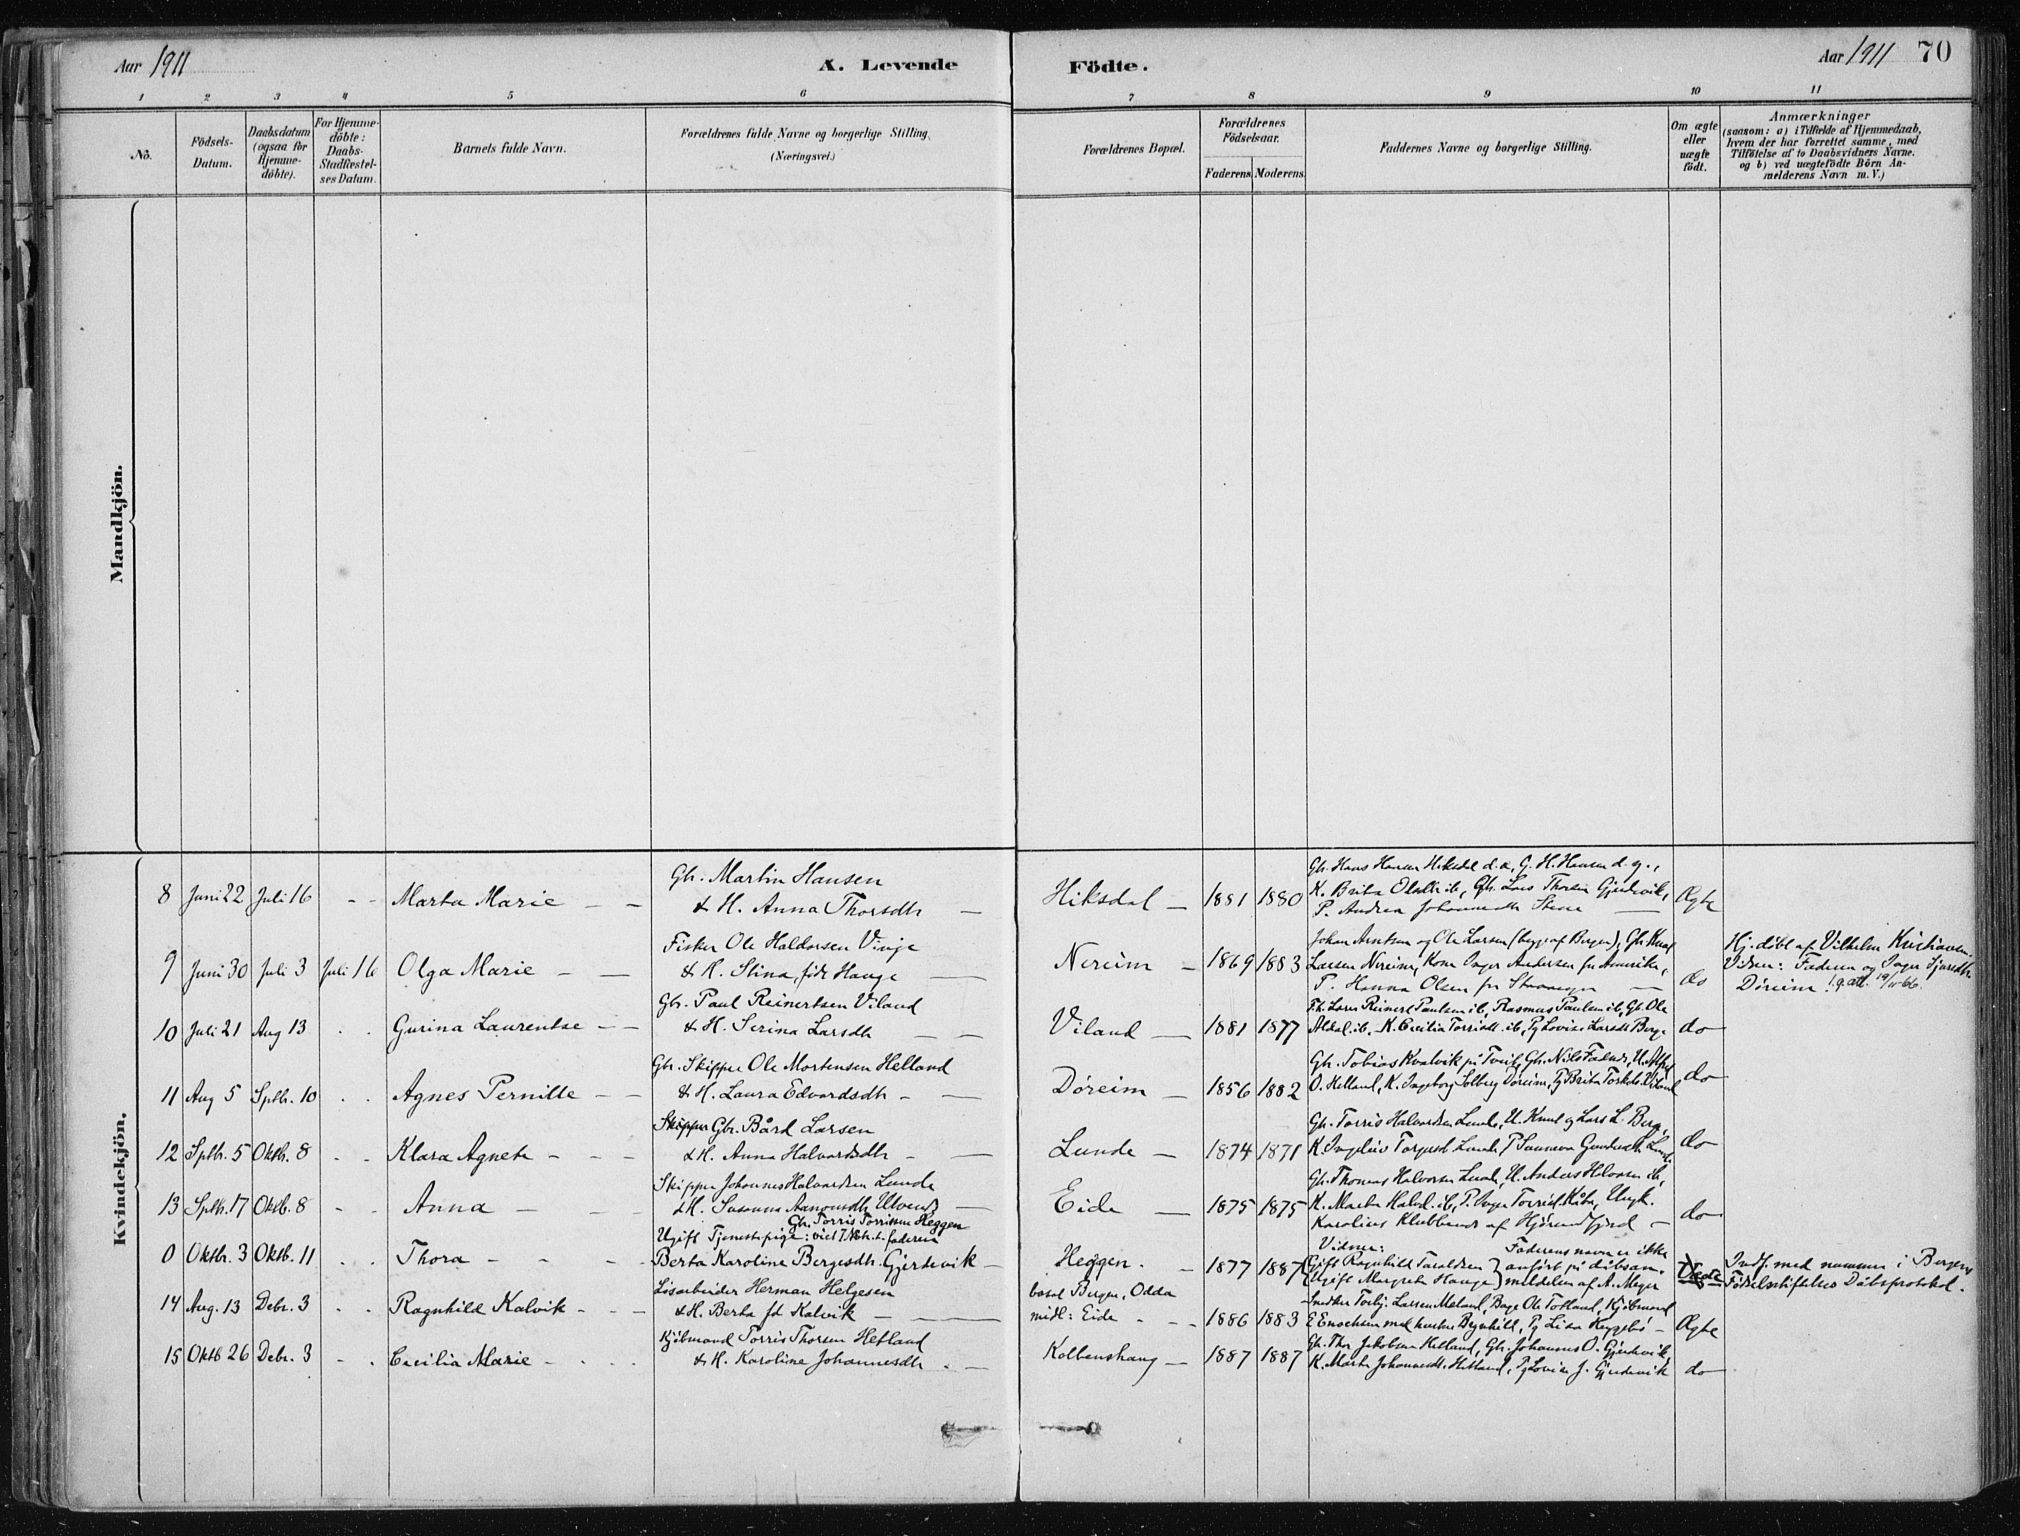 Aar 1911
A. Levende
Födte.
Aar 1911 70
1 2 3 4 5 6 7 8 9 10 11
No.
Födsels-
Datum.
Daabsdatum
(ogsaa for
Hjemme-
döbte).
For Hjemme-
döbte:
Daabs-
Stadfestel-
ses Datum.
Barnets fulde Navn.
Forældrenes fulde Navne og borgerlige Stilling.
(Næringsvei.)
Forældrenes Bopæl.
Forældrenes
Födselsaar.
Faderens Moderens
Faddernes Navne og borgerlige Stilling.
Om ægte
eller
uægte
födt.
Anmærkninger
(saasom: a) i Tilfælde af Hjemmedaab,
hvem der har forrettet samme, med
Tilföielse af to Daabsvidners Navne.
og b) ved uægtefödte Börn An-
melderens Navn m. V.)
Mandkjön.
Kvindekjön.
8 Juni 22 Juli 16 - - Marta Marie - -
Gbr. Martin Hansen
& H. Anna Thorsdtr -
Hiksdal - 1881 1880
Gbr. Hans Hansen Hiksdal d. æ, G. H. Hansen d. y.,
K. Brita Olsdtr ib, Gbr. Lars Thorsen Gjerdevik,
P. Andrea Johannesdtr Stene -
Ægte
9 Juni 30 Juli 3 Juli 16 Olga Marie - -
Fisker Ole Haldorsen Vinje
& H. Stina, født Hauge -
Nereim - 1869 1883
Johan Arntsen og Ole Larsen (begge af Bergen), Gbr. Knut
Larsen Nereim, Kone Inger Andersen fra Amerika,
P. Hanna Olsen fra Stavanger -
do
Hj. døbt af Vilhelm Kristiansen
Vidner: Faderen og Inger
Døreim
10 Juli 21 Aug 13 - - Gurina Laurentse - -
Gbr. Paul Reinertsen Viland
& H. Serina Larsdtr - -
Viland - 1881 1877
Reinert Paulsen ib, Rasmus Paulsen ib, Gb. Ole
Aldal ib, K. Cecilia Torrisdt. ib, Pg Lovise Larsdt Berge
do
11 Aug 5 Septb. 10 - - Agnes Pernille - -
Gbr. Skipper Ole Mortensen Helland
& H. Laura Edvardsdtr - -
Døreim - 1856 1882
Gbr. Tobias Kvalvik på Tveit, Gbr. Nils
O. Helland, K. Ingeborg Solberg Døreim, Pg Brita Torkels. Viland
do
12 Septb. 5 Oktb. 8 - - Klara Agnete - - -
Skipper Gbr. Bård Larsen
& H. Anna Halvardsdtr - -
Lunde - 1874 1871
Gbr. Torris Halvardsen Lunde, U. Knut og Lars L. Berg,
K. Lunde, P Sunneva
do
13 Septb. 17 Oktb. 8 - - Anna - - -
Skipper Johannes Halvardsen Lunde
& H. Susanna -
Eide - 1875 1875
Gbr. Thomas Halvorsen Lunde, U. Anders Halvorsen ib,
K. Marta Halvd. ib, P. Inger Torrisd. Ungk.
Karolius af Hjørundfjord -
do
0 Oktbr. 3 Oktb. 11 - - Thora - - -
Gbr. Torris Torrissen Heggen
Ugift Tjenestepige: viet 7 Nb. t. faderen
Berta Karoline Bergesdtr. Gjerdevik -
Heggen. - 1877 1887
Vidner: Faderens navn er ikke
Gift Ragnhild Taraldsen anført på dåbsan-
Ugift Margreta Hauge meldelsen af A. Meyer
Uægte
Indf. med nummer i Bergens
Fødselsstiftelses Dåbsprotokol.
14 Aug. 13 Debr. 3 - - Ragnhild Kalvik - - -
Løsarbeider Herman Helgesen
& H. Berta fdt Kalvik - -
bosat Bergen, Odda
midl: Eide - - - 1886 1883
Snedker Torbj. Larsen Meland, Bage Ole Totland, Kjøbmand
E Enochsen med hustru Pg Lisa -
Ægte
15 Oktb 26 Debr. 3 - - Cecilia Marie - - - -
Kjøbmand Torris Thorsen Hetland
& H. Karoline Johannesdtr - -
Kolbenshaug - 1887 1887
Gbr. Thor Jakobsen Hetland, Gbr. Johannes O. Gjerdevik
K. Marta Johannesdt. Hetland, Pg Lovise J. Gjerdevik
do